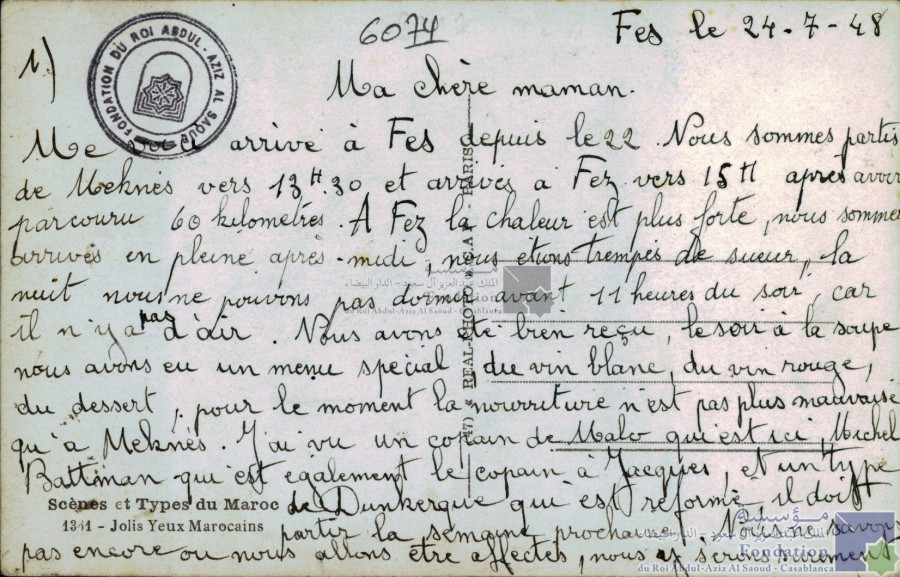 1)
FONDATION DU ROI ABDUL-AZIZ AL SAOUD
6074
Fes le 24-7-48
Ma chère maman.
Me arrivé à Fes depuis le 22. Nous sommes partis
de Meknès vers 13H.30 et arrivés à Fez vers 15H après avoir
parcouru 60 kilometres. A Fez la chaleur est plus forte, nous sommes
arrivés en pleine après-midi, nous étions trempés de sueur, la
nuit nous ne pouvons pas dormir avant 11 heures du soir, car
il n'y a pas d'air. Nous avons été bien reçu, le soir à la soupe
nous avons eu un menu spécial du vin blanc, du vin rouge,
du dessert, pour le moment la nourriture n'est pas plus mauvaise
qu'a Meknès. J'ai vu un copain de Malo qui est ici, Michel
Battman qui est egalement le copain à Jacques, et un type
de Dunkerque qui est reformé il doit
partir la semaine prochaine. Nous ne savons
pas encore ou nous allons être affectés, nous serons surement
Scènes et Types du Maroc
1311 - Jolis Yeux Marocains
(47) * REAL-PHOTO * C.A.P. PARIS
مؤسسة
الملك عبد العزيز آل سعود - الدار البيضاء
Fondation
du Roi Abdul-Aziz Al Saoud - Casablanca
مؤسسة
الملك عبد العزيز آل سعود - الدار البيضاء
Fondation
du Roi Abdul-Aziz Al Saoud - Casablanca